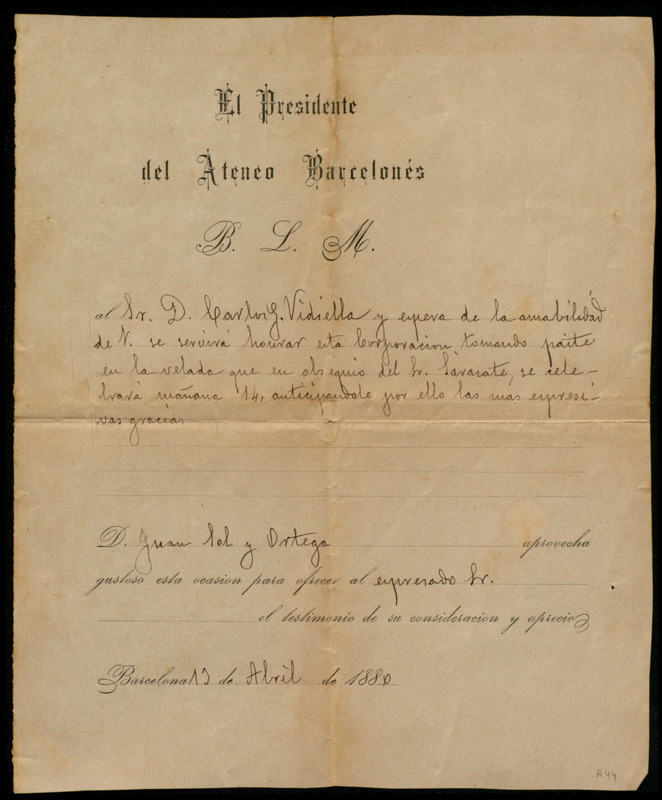 El Presidente
del Ateneo Barcelonés
B. L. M.
al Sr. D. Carlos G. Vidiella y espera de la amabilidad
de V. se servirá honrar esta Corporacion tomando parte
en la velada que en obsequio del Sr. Sarasate, se cele-
brará mañana 14, anticipandole por ello las mas expresi-
vas gracias
D. Juan Sol y Ortega aprovecha
gustoso esta ocasion para ofrecer al expresado Sr.
el testimonio de su consideracion y aprecio
Barcelona 13 de Abril de 1880
R44